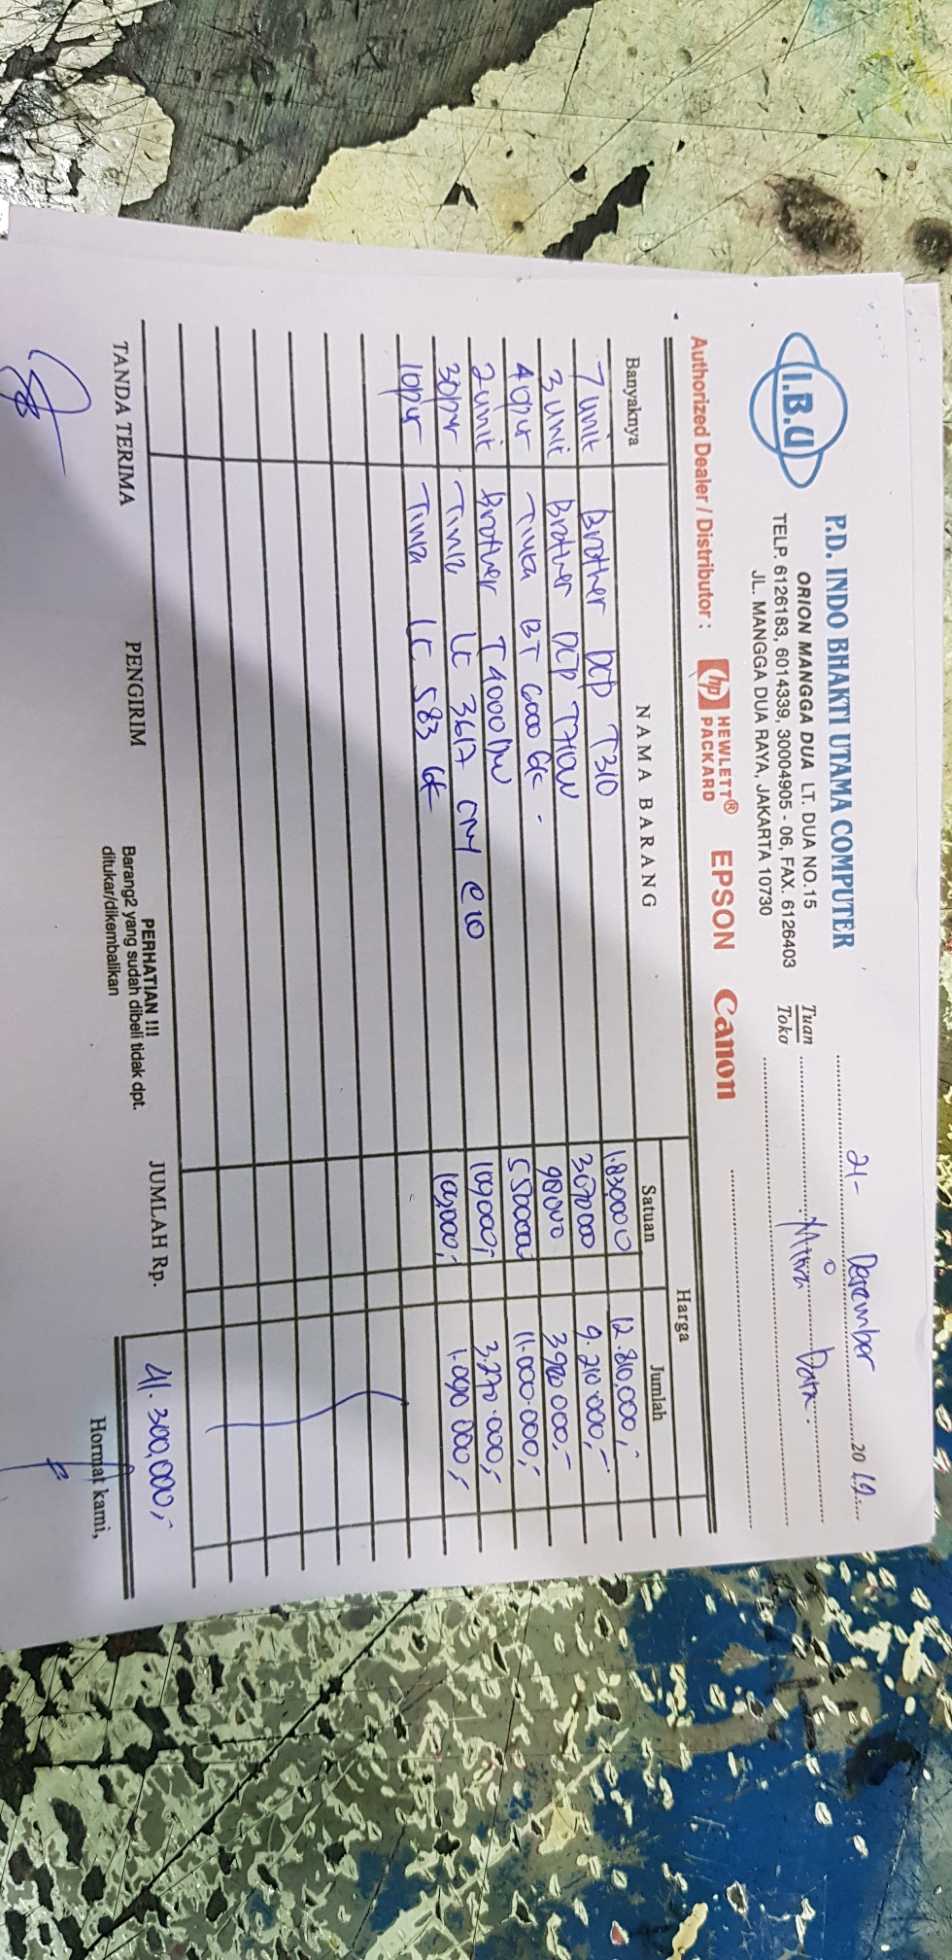 I.B.U
P.D. INDO BHAKTI UTAMA COMPUTER
ORION MANGGA DUA LT. DUA NO.15
TELP. 6126183, 6014339, 30004905 - 06, FAX. 6126403
JL. MANGGA DUA RAYA, JAKARTA 10730
21- Desember 2019
Tuan
Toko
Mitra Data.
Authorized Dealer / Distributor : hp HEWLETT® PACKARD EPSON Canon
Banyaknya NAMA BARANG Harga
Satuan Jumlah
7 unit Brother DCP T310 1.830000 12.810,000,-
3 unit Brother DCP T710W 3070000 9.210.000,-
40pcs Tinta BT 6000 BK - 98000 3920.000,-
2 unit Brother T4000DW 5500000 11.000.000,-
30pcs Tinta LC 3617 CMY @10 109,000,- 3.270.000,-
10pcs Tinta LC 583 BK 109,000,- 1.090.000,-
JUMLAH Rp. 41.300,000,-
TANDA TERIMA PENGIRIM
PERHATIAN !!!
Barang2 yang sudah dibeli tidak dpt.
ditukar/dikembalikan
Hormat kami,